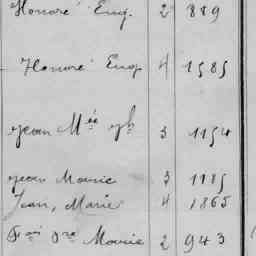 Honoré Eug. 2 889
Honoré Eug. 4 1585
Jean M 3 1154
Jean Marie 3 1185
Jean, Marie 4 1865
Marie 2 943